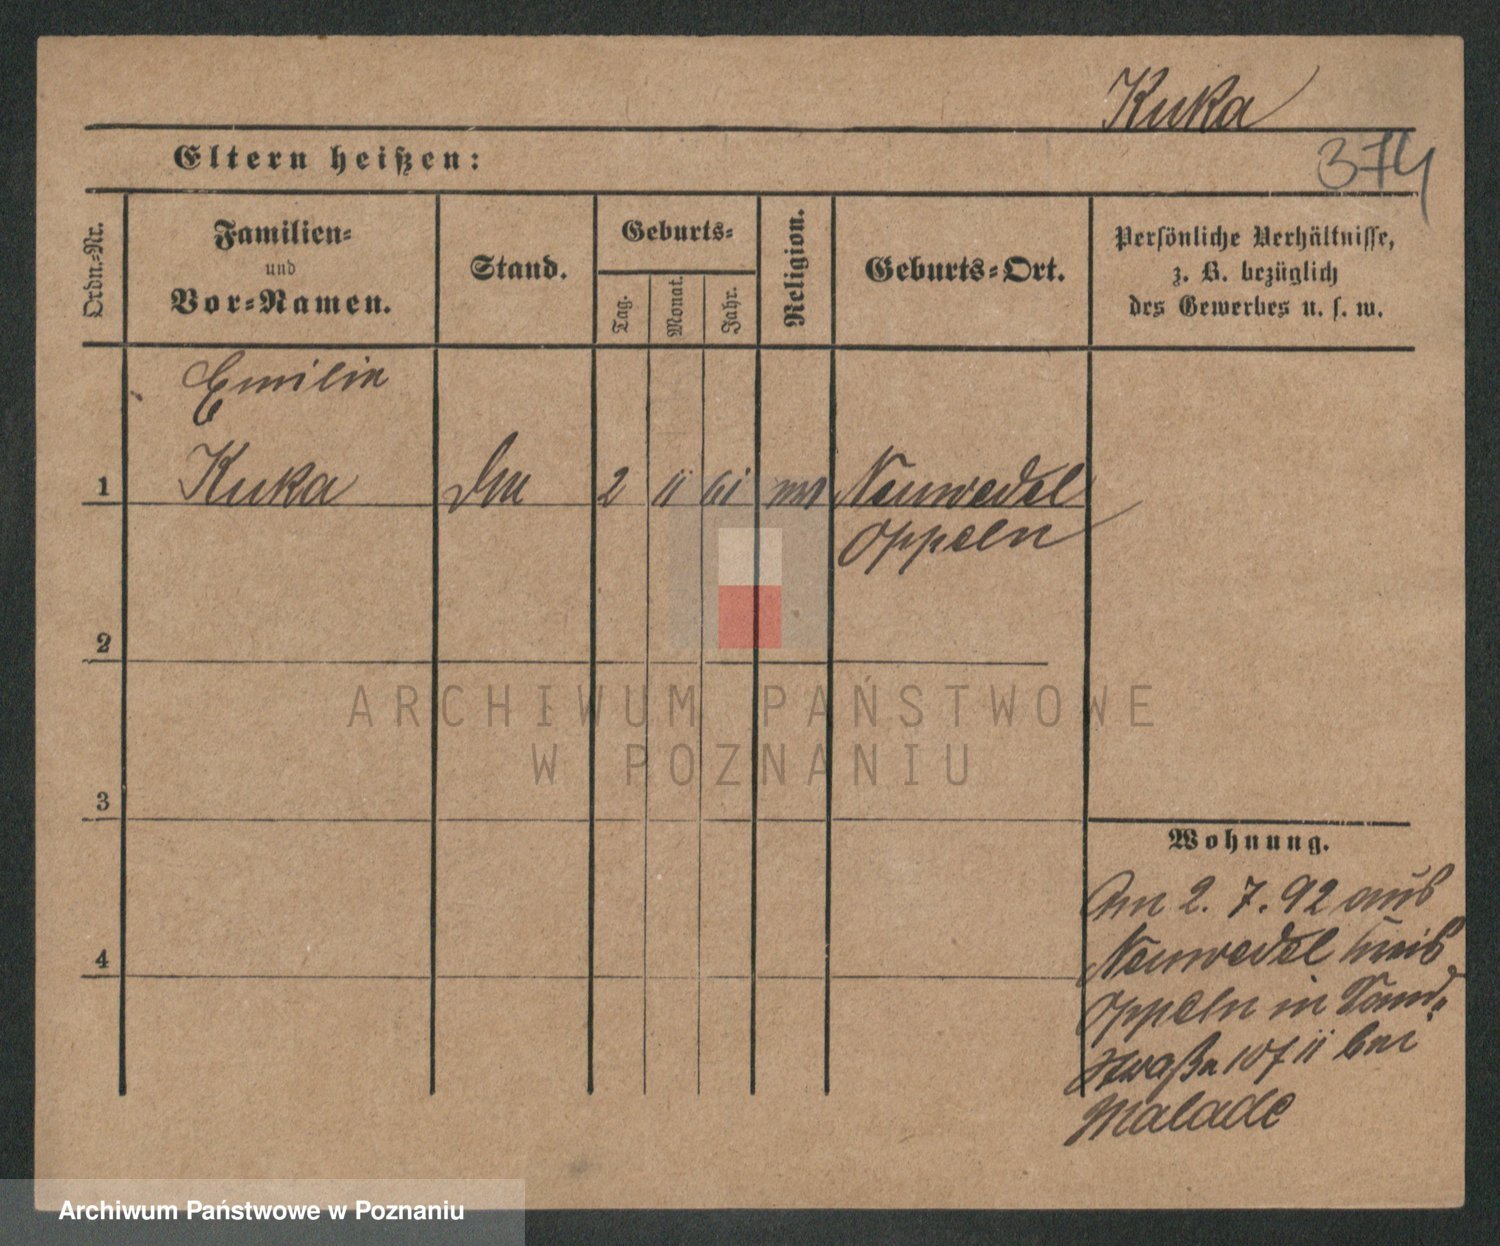 Kuka
374
Eltern heißen:
Ordn.-Nr.
Familien-
und
Vor-Namen.
Stand.
Geburts-
Tag.
Monat.
Jahr.
Religion.
Geburts-Ort.
Persönliche Verhältnisse,
z. B. bezüglich
des Gewerbes u. s. w.
Emilie
1 Kuka 2 11 61 Neuwedel
Oppeln
2
3
4
Wohnung.
Am 2. 7. 92 aus
Neuwedel Kreis
Oppeln in
straße 10 f II bei
Malade
ARCHIWUM PAŃSTWOWE
W POZNANIU
Archiwum Państwowe w Poznaniu